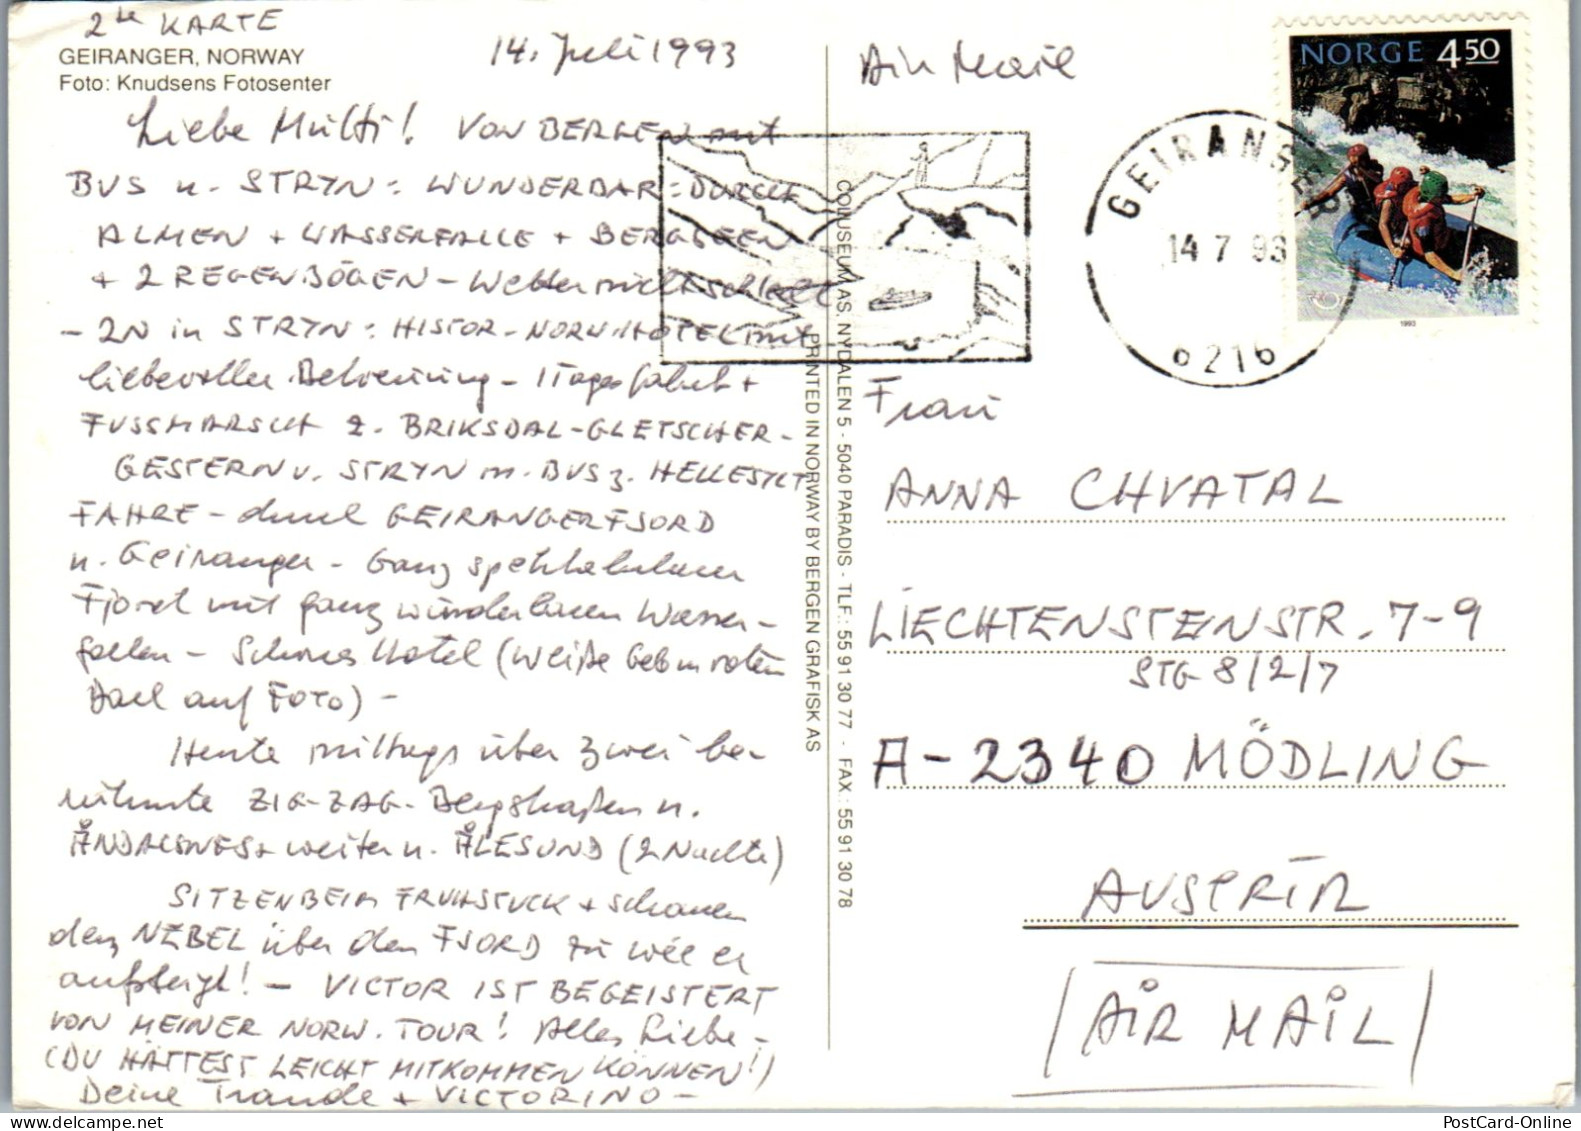 2te KARTE
GEIRANGER, NORWAY
Foto: Knudsens Fotosenter
14. Juli 1993
Liebe Multi! VON BERGEN mit
BUS n. STRYN: WUNDERBAR: DURCH
ALMEN + WASSERFÄLLE + BERGSEEN
+ 2 REGENBÖGEN - Wetter nicht schlecht
- 2N in STRYN: HISTOR-NORW. HOTEL mit
liebevoller Betreuung - 1 Tagesfahrt +
FUSSMARSCH z. BRIKSDAL-GLETSCHER-
GESTERN v. STRYN m. BUS z. HELLESYLT
FÄHRE - durch GEIRANGERFJORD
n. Geiranger - Ganz spektakulärer
Fjord mit ganz wunderbaren Wasser-
fällen - Schönes Hotel (weiße Geb m roten
Dach auf FOTO) -
Heute mittags über zwei be-
rühmte ZIG-ZAG-Bergstraßen n.
ÅNDALSNES + weiter n. ÅLESUND (2 Nächte)
SITZEN BEIM FRÜHSTÜCK + schauen
dem NEBEL über dem FJORD zu wie er
aufsteigt! - VICTOR IST BEGEISTERT
VON MEINER NORW. TOUR! Alles Liebe -
(DU HÄTTEST LEICHT MITKOMMEN KÖNNEN!)
Deine Traude + VICTORINO -
COLUSEUM AS, NYDALEN 5 - 5040 PARADIS - TLF.: 55 91 30 77 - FAX: 55 91 30 78
PRINTED IN NORWAY BY BERGEN GRAFISK AS
Air Mail
NORGE 4 50
1993
GEIRANGER
14 7 93
6216
Frau
ANNA CHVATAL
LIECHTENSTEINSTR. 7-9
STG 8/2/7
A-2340 MÖDLING
AUSTRIA
AIR MAIL
PostCard-Online